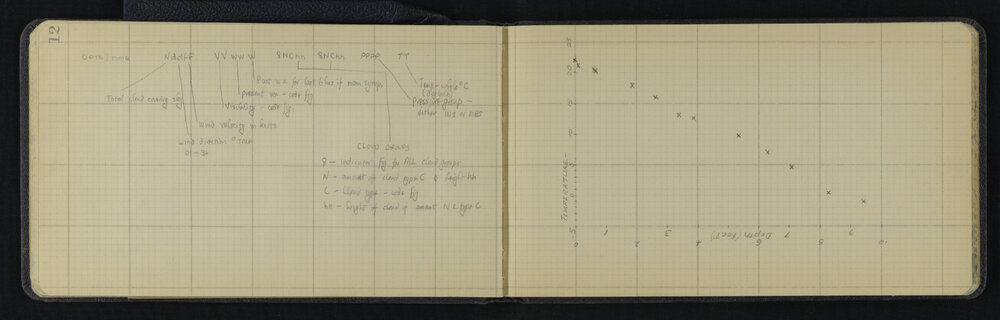 12
Date/Time NddfF VV ww W 8NChh 8NChh PPPP TT
Past wx for last 6 hrs if main synop.
Temp - whole °C
present wx - code fig
Total cloud covering sky
Pressure group -
either INS or MBS
Visibility - code fig.
Wind velocity in knots
Wind direction °True
01-36
CLOUD GROUPS
8 - indicator fig for ALL cloud groups
N - amount of cloud type C & height hh
C - Cloud type - code fig
hh - height of cloud of amount N & type C
25
20
TEMPERATURE -
-5
0 1 2 3 4 6 7 8 9 10
Depth (feet)